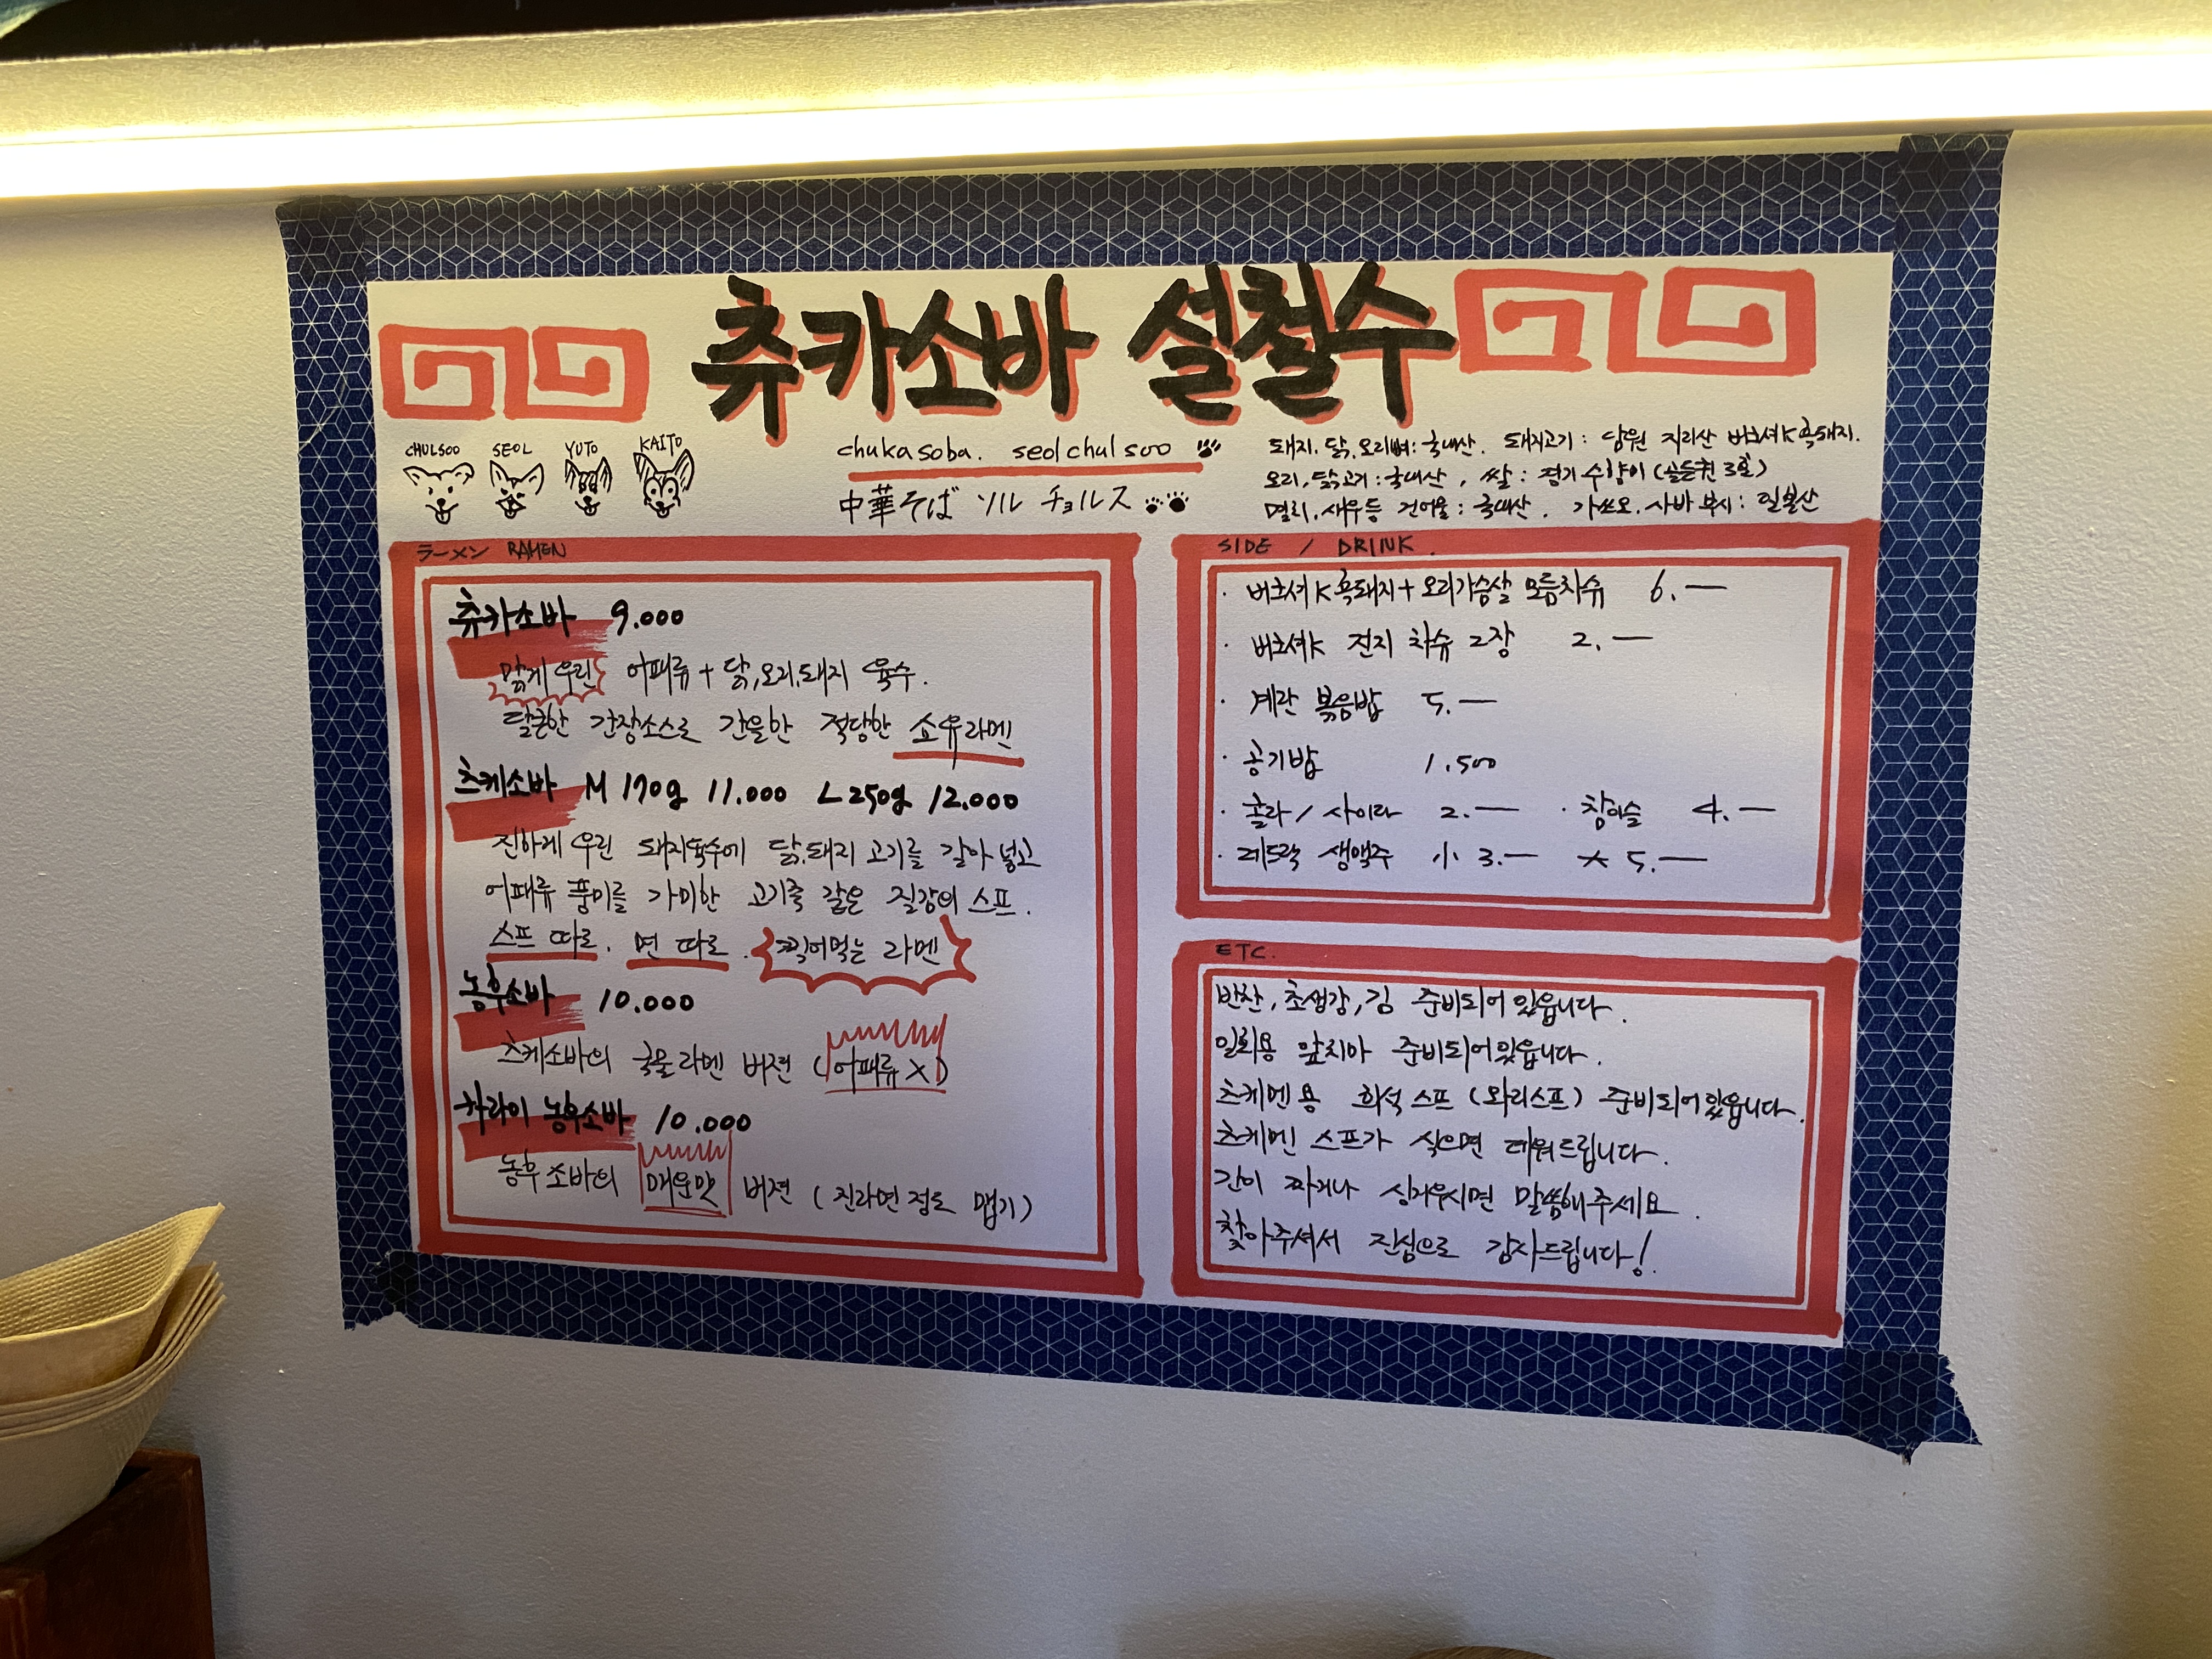 츄카소바 설철수
CHULSOO SEOL YUTO KAITO
chukasoba. seolchulsoo
中華そば ソル チョルス
돼지.닭.오리뼈: 국내산. 돼지고기: 남원 지리산 버크셔K흑돼지.
오리,닭고기:국내산, 쌀: 경기 수향미(골든퀸3호)
멸치.새우등 건어물: 국내산. 가쓰오.사바 부시: 일본산
ラーメン RAMEN
츄카소바 9.000
맑게 우린 어패류+닭,오리.돼지 육수.
달큰한 간장소스로 간을한 적당한 쇼유라멘
츠케소바 M 170g 11.000 L 250g 12.000
진하게 우린 돼지육수에 닭.돼지 고기를 갈아 넣고
어패류 풍미를 가미한 고기죽 같은 질감의 스프.
스프 따로. 면 따로. 찍어먹는 라멘
농후소바 10.000
츠케소바의 국물라멘 버젼 (어패류X)
카라이 농후소바 10.000
농후소바의 매운맛 버젼 (진라면 정도 맵기)
SIDE / DRINK
· 버크셔K흑돼지+오리가슴살 모듬차슈 6.—
· 버크셔K 전지 차슈 2장 2.—
· 계란 볶음밥 5.—
· 공기밥 1.500
· 콜라/사이다 2.— · 참이슬 4.—
· 레드락 생맥주 小 3.— 大 5.—
ETC.
반찬,초생강,김 준비되어있읍니다.
일회용 앞치마 준비되어있읍니다.
츠케멘용 희석스프(와리스프) 준비되어있읍니다.
츠케멘 스프가 식으면 데워드립니다.
간이 짜거나 싱거우시면 말씀해주세요.
찾아주셔서 진심으로 감사드립니다!